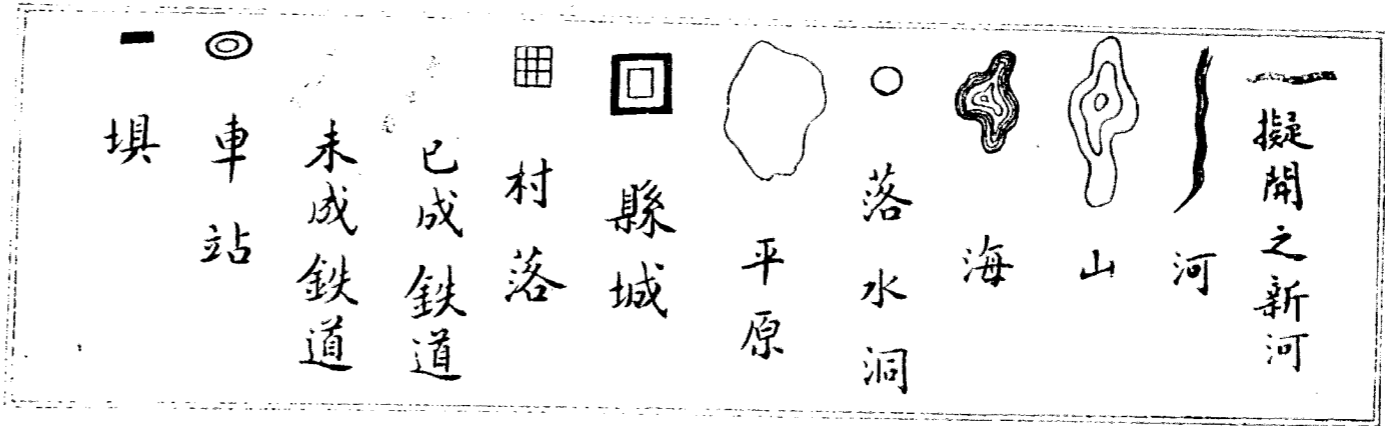 擬開之新河
河
山
海
落水洞
平原
縣城
村落
已成鉄道
未成鉄道
車站
埧